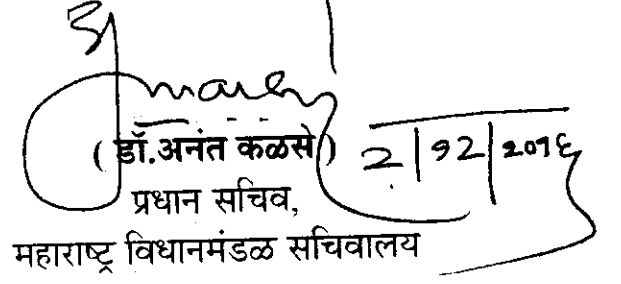 ( डॉ.अनंत कळसे ) २/१२/२०१६
प्रधान सचिव,
महाराष्ट्र विधानमंडळ सचिवालय